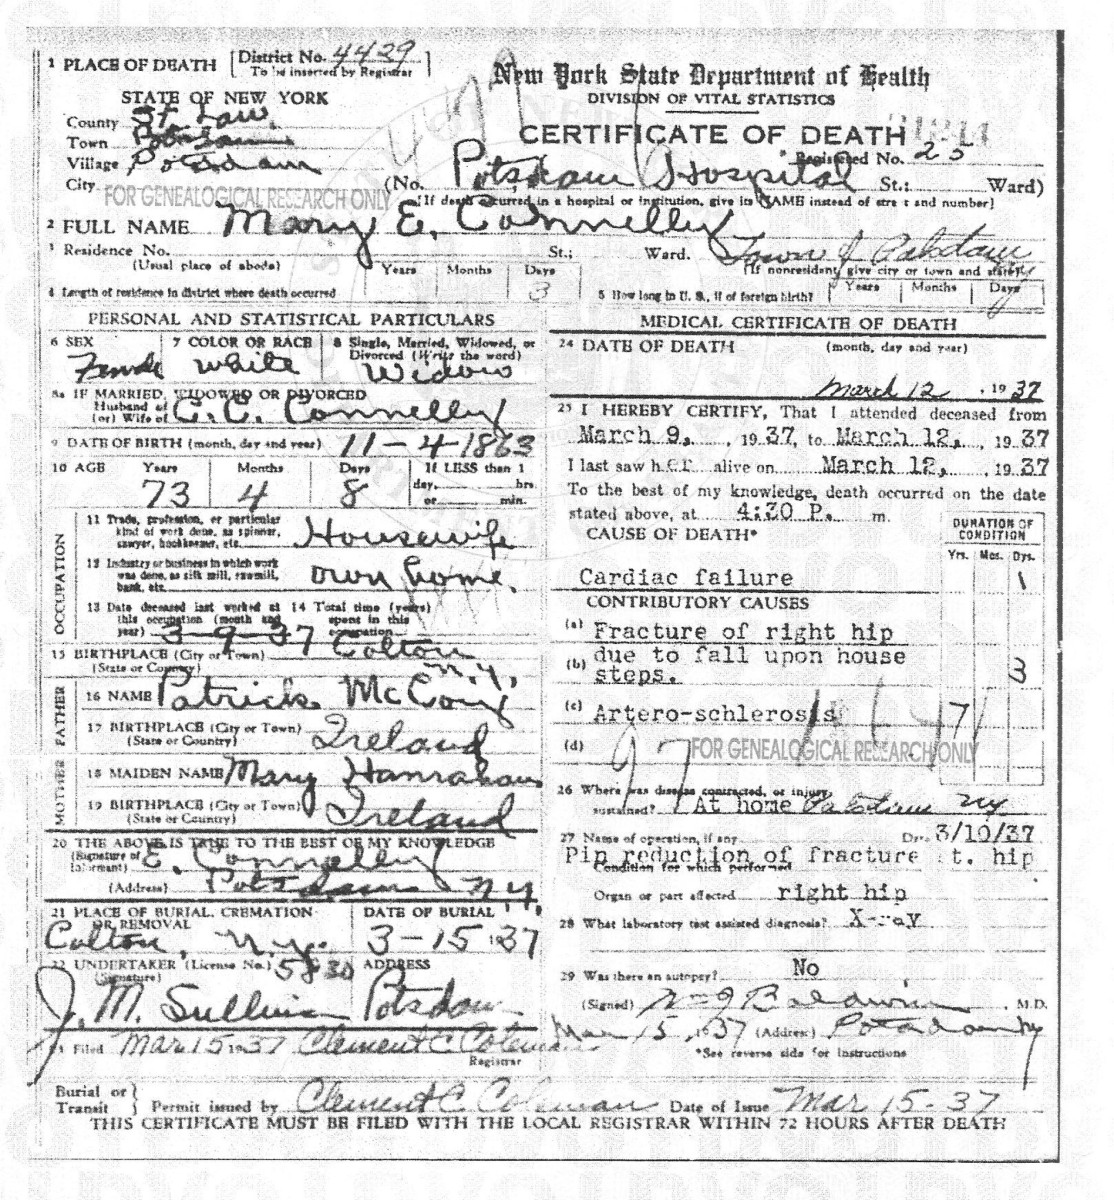 1 PLACE OF DEATH [District No. 4429
To be inserted by Registrar]
STATE OF NEW YORK
County St. Law.
Town Potsdam
Village Potsdam
City
New York State Department of Health
DIVISION OF VITAL STATISTICS
CERTIFICATE OF DEATH
Registered No. 25
(No. Potsdam Hospital St.; Ward)
FOR GENEALOGICAL RESEARCH ONLY
[If death occurred in a hospital or institution, give its NAME instead of street and number]
2 FULL NAME Mary E. Connelly
Residence No. St.; Ward. Town of Potsdam
(Usual place of abode) (If nonresident, give city or town and state)
4 Length of residence in district where death occurred Years Months Days 3
5 How long in U. S., if of foreign birth? Years Months Days
PERSONAL AND STATISTICAL PARTICULARS
6 SEX Female
7 COLOR OR RACE White
8 Single, Married, Widowed, or Divorced (Write the word) Widow
8a IF MARRIED, WIDOWED OR DIVORCED
Husband of
(or) Wife of C. C. Connelly
9 DATE OF BIRTH (month, day and year) 11-4-1863
10 AGE Years Months Days If LESS than 1
73 4 8 day, hrs.
or min.
OCCUPATION
11 Trade, profession, or particular
kind of work done, as spinner,
sawyer, bookkeeper, etc. Housewife
12 Industry or business in which work
was done, as silk mill, sawmill,
bank, etc. own home.
13 Date deceased last worked at
this occupation (month and
year) 3-9-37
14 Total time (years)
spent in this
occupation
15 BIRTHPLACE (City or Town) Colton
(State or Country) N.Y.
FATHER
16 NAME Patrick McCoy
17 BIRTHPLACE (City or Town)
(State or Country) Ireland
MOTHER
18 MAIDEN NAME Mary Hanrahan
19 BIRTHPLACE (City or Town)
(State or Country) Ireland
20 THE ABOVE IS TRUE TO THE BEST OF MY KNOWLEDGE
(Signature of
Informant) E. Connelly
(Address) Potsdam N.Y.
21 PLACE OF BURIAL, CREMATION
OR REMOVAL
Colton, N.Y.
DATE OF BURIAL
3-15 1937
22 UNDERTAKER (License No.) 5830
(Signature)
J. M. Sullivan
ADDRESS
Potsdam
23 Filed Mar 15 1937 Clement C Coleman
Registrar
MEDICAL CERTIFICATE OF DEATH
24 DATE OF DEATH (month, day and year)
March 12, 1937
25 I HEREBY CERTIFY, That I attended deceased from
March 9, 1937, to March 12, 1937
I last saw her alive on March 12, 1937
To the best of my knowledge, death occurred on the date
stated above, at 4:30 P. m.
CAUSE OF DEATH*
DURATION OF
CONDITION
Yrs. Mos. Dys.
Cardiac failure 1
CONTRIBUTORY CAUSES
(a) Fracture of right hip
(b) due to fall upon house
steps. 3
(c) Artero-schlerosis
(d)
FOR GENEALOGICAL RESEARCH ONLY
26 Where was disease contracted, or injury
sustained? At home Potsdam NY
27 Name of operation, if any Date 3/10/37
Pin reduction of fracture rt. hip
Condition for which performed
Organ or part affected right hip
28 What laboratory test assisted diagnosis? X-ray
29 Was there an autopsy? No
(Signed) Baldwin M.D.
Mar 15, 1937 (Address) Potsdam NY
*See reverse side for instructions
Burial or
Transit } Permit issued by Clement C. Coleman Date of Issue Mar 15-37
THIS CERTIFICATE MUST BE FILED WITH THE LOCAL REGISTRAR WITHIN 72 HOURS AFTER DEATH